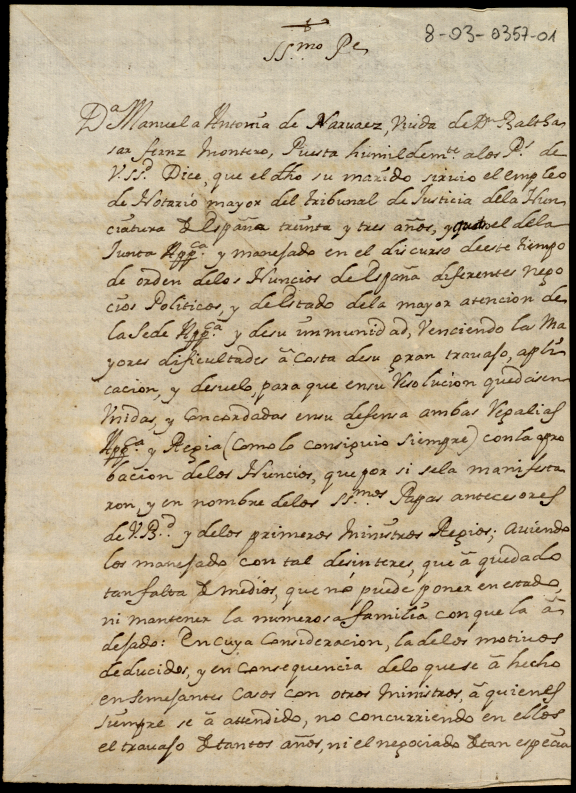 8-03-0357-01
SS.mo Pe
Da Manuela Antonia de Narvaez, Viuda de Dn Baltha
sar fernz Montero, Puesta humildemte. a los Ps. de
V. SSd. Dice, que el dho su marido sirvio el empleo
de Notario mayor del Tribunal de Justicia dela Nun
ciatura de España treinta y tres años, y el dela
Junta Appca. y manejado en el discurso deeste tiempo
de orden delos Nuncios de España diferentes nego
cios Politicos, y de Estado dela mayor atencion de
la Sede Appca. y desu immunidad, Venciendo las Ma
yores dificultades â costa desu gran travajo, apli
cacion, y desvelo, para que ensu Resolucion quedasen
Vnidas, y Concordadas ensu defensa ambas Regalias
Appca. y Regia (como lo consiguio siempre) con la apro
bacion delos Nuncios, que por si se la manifesta
ron, y en nombre delos SS.mos Papas antecesores
de V. Bd. y delos primeros Ministros Regios; Aviendo
los manejado con tal desinteres, que â quedado
tan falta de medios, que no puede poner en estado,
ni mantener la numerosa familia con que la â
dejado: En cuya Consideracion, la delos motivos
deducidos, y en Consequencia delo que se â hecho
en semejantes Casos con otros Ministros, â quienes
siempre se â attendido, no concurriendo en ellos
el travajo de tantos años, ni el negociado de tan especia